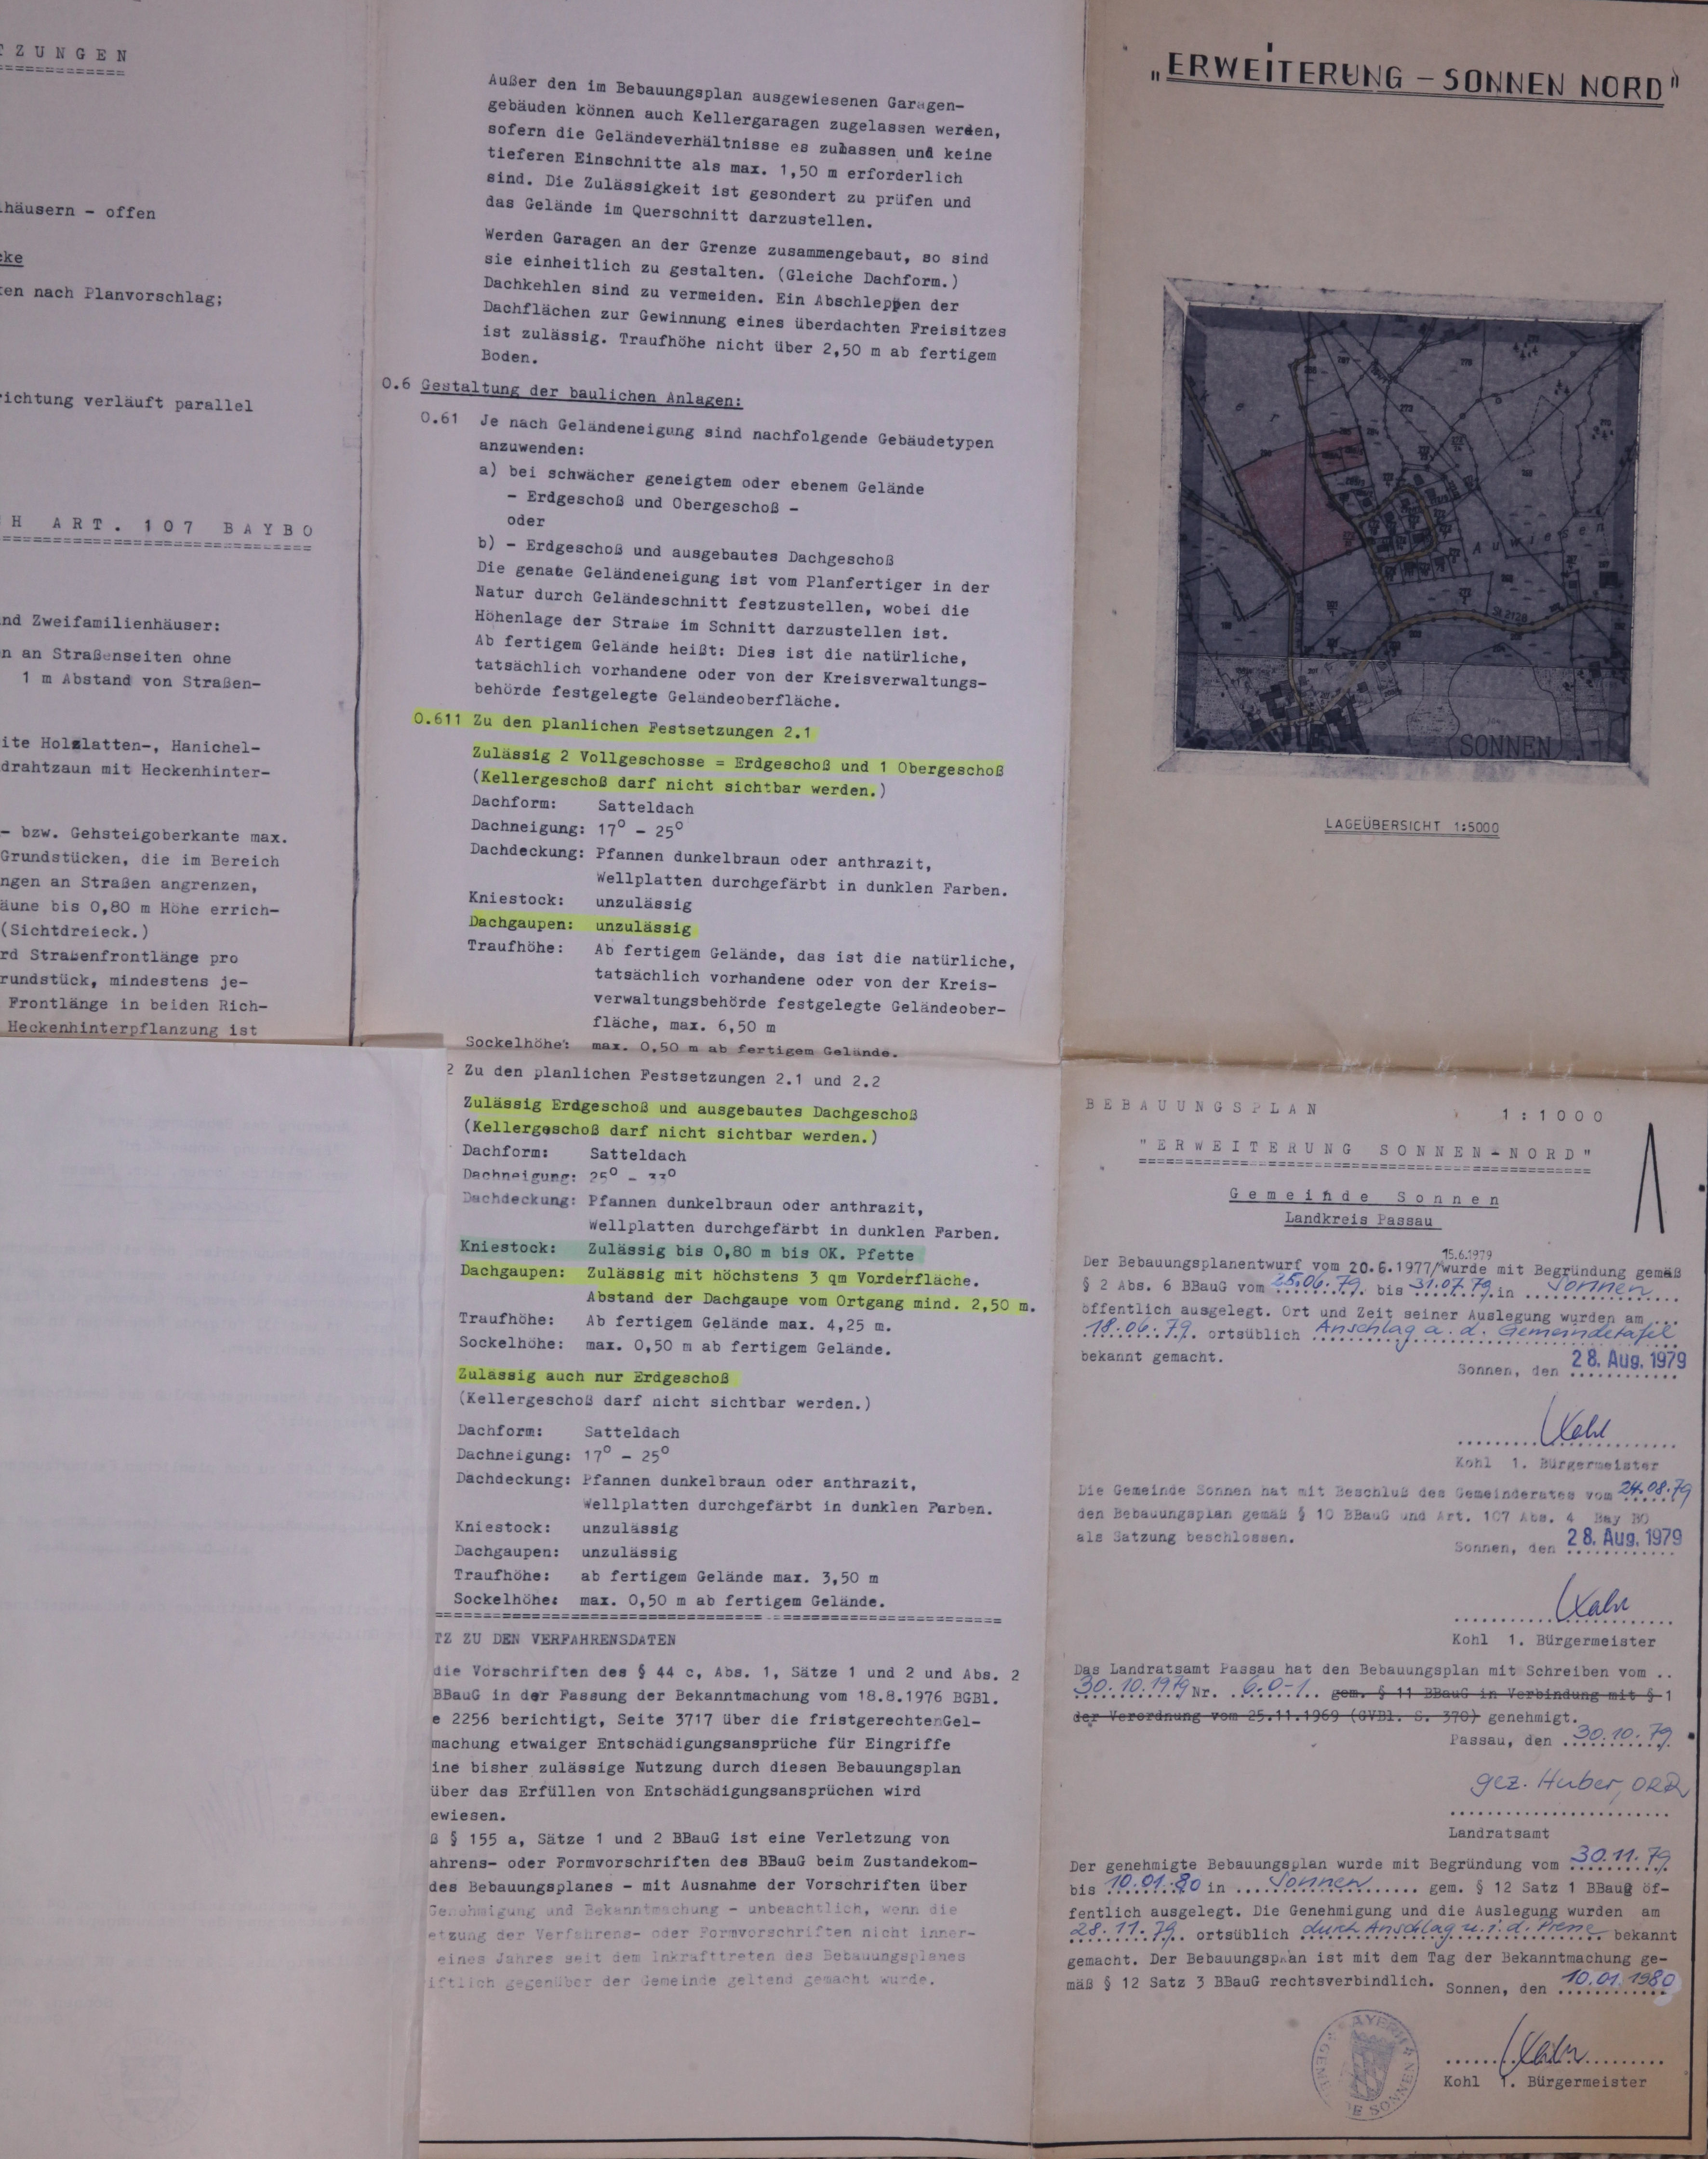 TZUNGEN
lhäusern - offen
cke
en nach Planvorschlag;
richtung verläuft parallel
H ART. 107 BAYBO
nd Zweifamilienhäuser:
n an Straßenseiten ohne
1 m Abstand von Straßen-
ite Holzlatten-, Hanichel-
drahtzaun mit Heckenhinter-
- bzw. Gehsteigoberkante max.
Grundstücken, die im Bereich
ngen an Straßen angrenzen,
äune bis 0,80 m Höhe errich-
(Sichtdreieck.)
rd Straßenfrontlänge pro
rundstück, mindestens je-
Frontlänge in beiden Rich-
Heckenhinterpflanzung ist
Außer den im Bebauungsplan ausgewiesenen Garagen-
gebäuden können auch Kellergaragen zugelassen werden,
sofern die Geländeverhältnisse es zulassen und keine
tieferen Einschnitte als max. 1,50 m erforderlich
sind. Die Zulässigkeit ist gesondert zu prüfen und
das Gelände im Querschnitt darzustellen.
Werden Garagen an der Grenze zusammengebaut, so sind
sie einheitlich zu gestalten. (Gleiche Dachform.)
Dachkehlen sind zu vermeiden. Ein Abschleppen der
Dachflächen zur Gewinnung eines überdachten Freisitzes
ist zulässig. Traufhöhe nicht über 2,50 m ab fertigem
Boden.
0.6 Gestaltung der baulichen Anlagen:
0.61 Je nach Geländeneigung sind nachfolgende Gebäudetypen
anzuwenden:
a) bei schwächer geneigtem oder ebenem Gelände
- Erdgeschoß und Obergeschoß -
oder
b) - Erdgeschoß und ausgebautes Dachgeschoß
Die genaue Geländeneigung ist vom Planfertiger in der
Natur durch Geländeschnitt festzustellen, wobei die
Höhenlage der Straße im Schnitt darzustellen ist.
Ab fertigem Gelände heißt: Dies ist die natürliche,
tatsächlich vorhandene oder von der Kreisverwaltungs-
behörde festgelegte Geländeoberfläche.
0.611 Zu den planlichen Festsetzungen 2.1
Zulässig 2 Vollgeschosse = Erdgeschoß und 1 Obergeschoß
(Kellergeschoß darf nicht sichtbar werden.)
Dachform: Satteldach
Dachneigung: 17° - 25°
Dachdeckung: Pfannen dunkelbraun oder anthrazit,
Wellplatten durchgefärbt in dunklen Farben.
Kniestock: unzulässig
Dachgaupen: unzulässig
Traufhöhe: Ab fertigem Gelände, das ist die natürliche,
tatsächlich vorhandene oder von der Kreis-
verwaltungsbehörde festgelegte Geländeober-
fläche, max. 6,50 m
Sockelhöhe: max. 0,50 m ab fertigem Gelände.
2 Zu den planlichen Festsetzungen 2.1 und 2.2
Zulässig Erdgeschoß und ausgebautes Dachgeschoß
(Kellergeschoß darf nicht sichtbar werden.)
Dachform: Satteldach
Dachneigung: 25° - 33°
Dachdeckung: Pfannen dunkelbraun oder anthrazit,
Wellplatten durchgefärbt in dunklen Farben.
Kniestock: Zulässig bis 0,80 m bis OK. Pfette
Dachgaupen: Zulässig mit höchstens 3 qm Vorderfläche.
Abstand der Dachgaupe vom Ortgang mind. 2,50 m.
Traufhöhe: Ab fertigem Gelände max. 4,25 m.
Sockelhöhe: max. 0,50 m ab fertigem Gelände.
Zulässig auch nur Erdgeschoß
(Kellergeschoß darf nicht sichtbar werden.)
Dachform: Satteldach
Dachneigung: 17° - 25°
Dachdeckung: Pfannen dunkelbraun oder anthrazit,
Wellplatten durchgefärbt in dunklen Farben.
Kniestock: unzulässig
Dachgaupen: unzulässig
Traufhöhe: ab fertigem Gelände max. 3,50 m
Sockelhöhe: max. 0,50 m ab fertigem Gelände.
TZ ZU DEN VERFAHRENSDATEN
die Vorschriften des § 44 c, Abs. 1, Sätze 1 und 2 und Abs. 2
BBauG in der Fassung der Bekanntmachung vom 18.8.1976 BGBl.
e 2256 berichtigt, Seite 3717 über die fristgerechtenGel-
machung etwaiger Entschädigungsansprüche für Eingriffe
ine bisher zulässige Nutzung durch diesen Bebauungsplan
über das Erfüllen von Entschädigungsansprüchen wird
ewiesen.
ß § 155 a, Sätze 1 und 2 BBauG ist eine Verletzung von
ahrens- oder Formvorschriften des BBauG beim Zustandekom-
des Bebauungsplanes - mit Ausnahme der Vorschriften über
Genehmigung und Bekanntmachung - unbeachtlich, wenn die
etzung der Verfahrens- oder Formvorschriften nicht inner-
eines Jahres seit dem Inkrafttreten des Bebauungsplanes
iftlich gegenüber der Gemeinde geltend gemacht wurde.
"ERWEITERUNG - SONNEN NORD"
Auwiesen
St 2128
SONNEN
LAGEÜBERSICHT 1:5000
BEBAUUNGSPLAN 1:1000
"ERWEITERUNG SONNEN-NORD"
Gemeinde Sonnen
Landkreis Passau
15.6.1979
Der Bebauungsplanentwurf vom 20.6.1977/wurde mit Begründung gemäß
§ 2 Abs. 6 BBauG vom 25.06.79. bis 31.07.79.in Sonnen
öffentlich ausgelegt. Ort und Zeit seiner Auslegung wurden am ...
18.06.79. ortsüblich Anschlag a. d. Gemeindetafel
bekannt gemacht.
Sonnen, den 28. Aug. 1979
Kohl 1. Bürgermeister
Die Gemeinde Sonnen hat mit Beschluß des Gemeinderates vom 24.08.79
den Bebauungsplan gemäß § 10 BBauG und Art. 107 Abs. 4 Bay BO
als Satzung beschlossen.
Sonnen, den 28. Aug. 1979
Kohl 1. Bürgermeister
Das Landratsamt Passau hat den Bebauungsplan mit Schreiben vom ..
30.10.1979 Nr. 6.0-1 gem. § 11 BBauG in Verbindung mit § 1
der Verordnung vom 25.11.1969 (GVBl. S. 370) genehmigt.
Passau, den 30.10.79
gez. Huber, ORR
Landratsamt
Der genehmigte Bebauungsplan wurde mit Begründung vom 30.11.79
bis 10.01.80 in Sonnen gem. § 12 Satz 1 BBauG öf-
fentlich ausgelegt. Die Genehmigung und die Auslegung wurden am
28.11.79. ortsüblich durch Anschlag u. i. d. Presse bekannt
gemacht. Der Bebauungsplan ist mit dem Tag der Bekanntmachung ge-
mäß § 12 Satz 3 BBauG rechtsverbindlich.
Sonnen, den 10.01.1980
Kohl 1. Bürgermeister